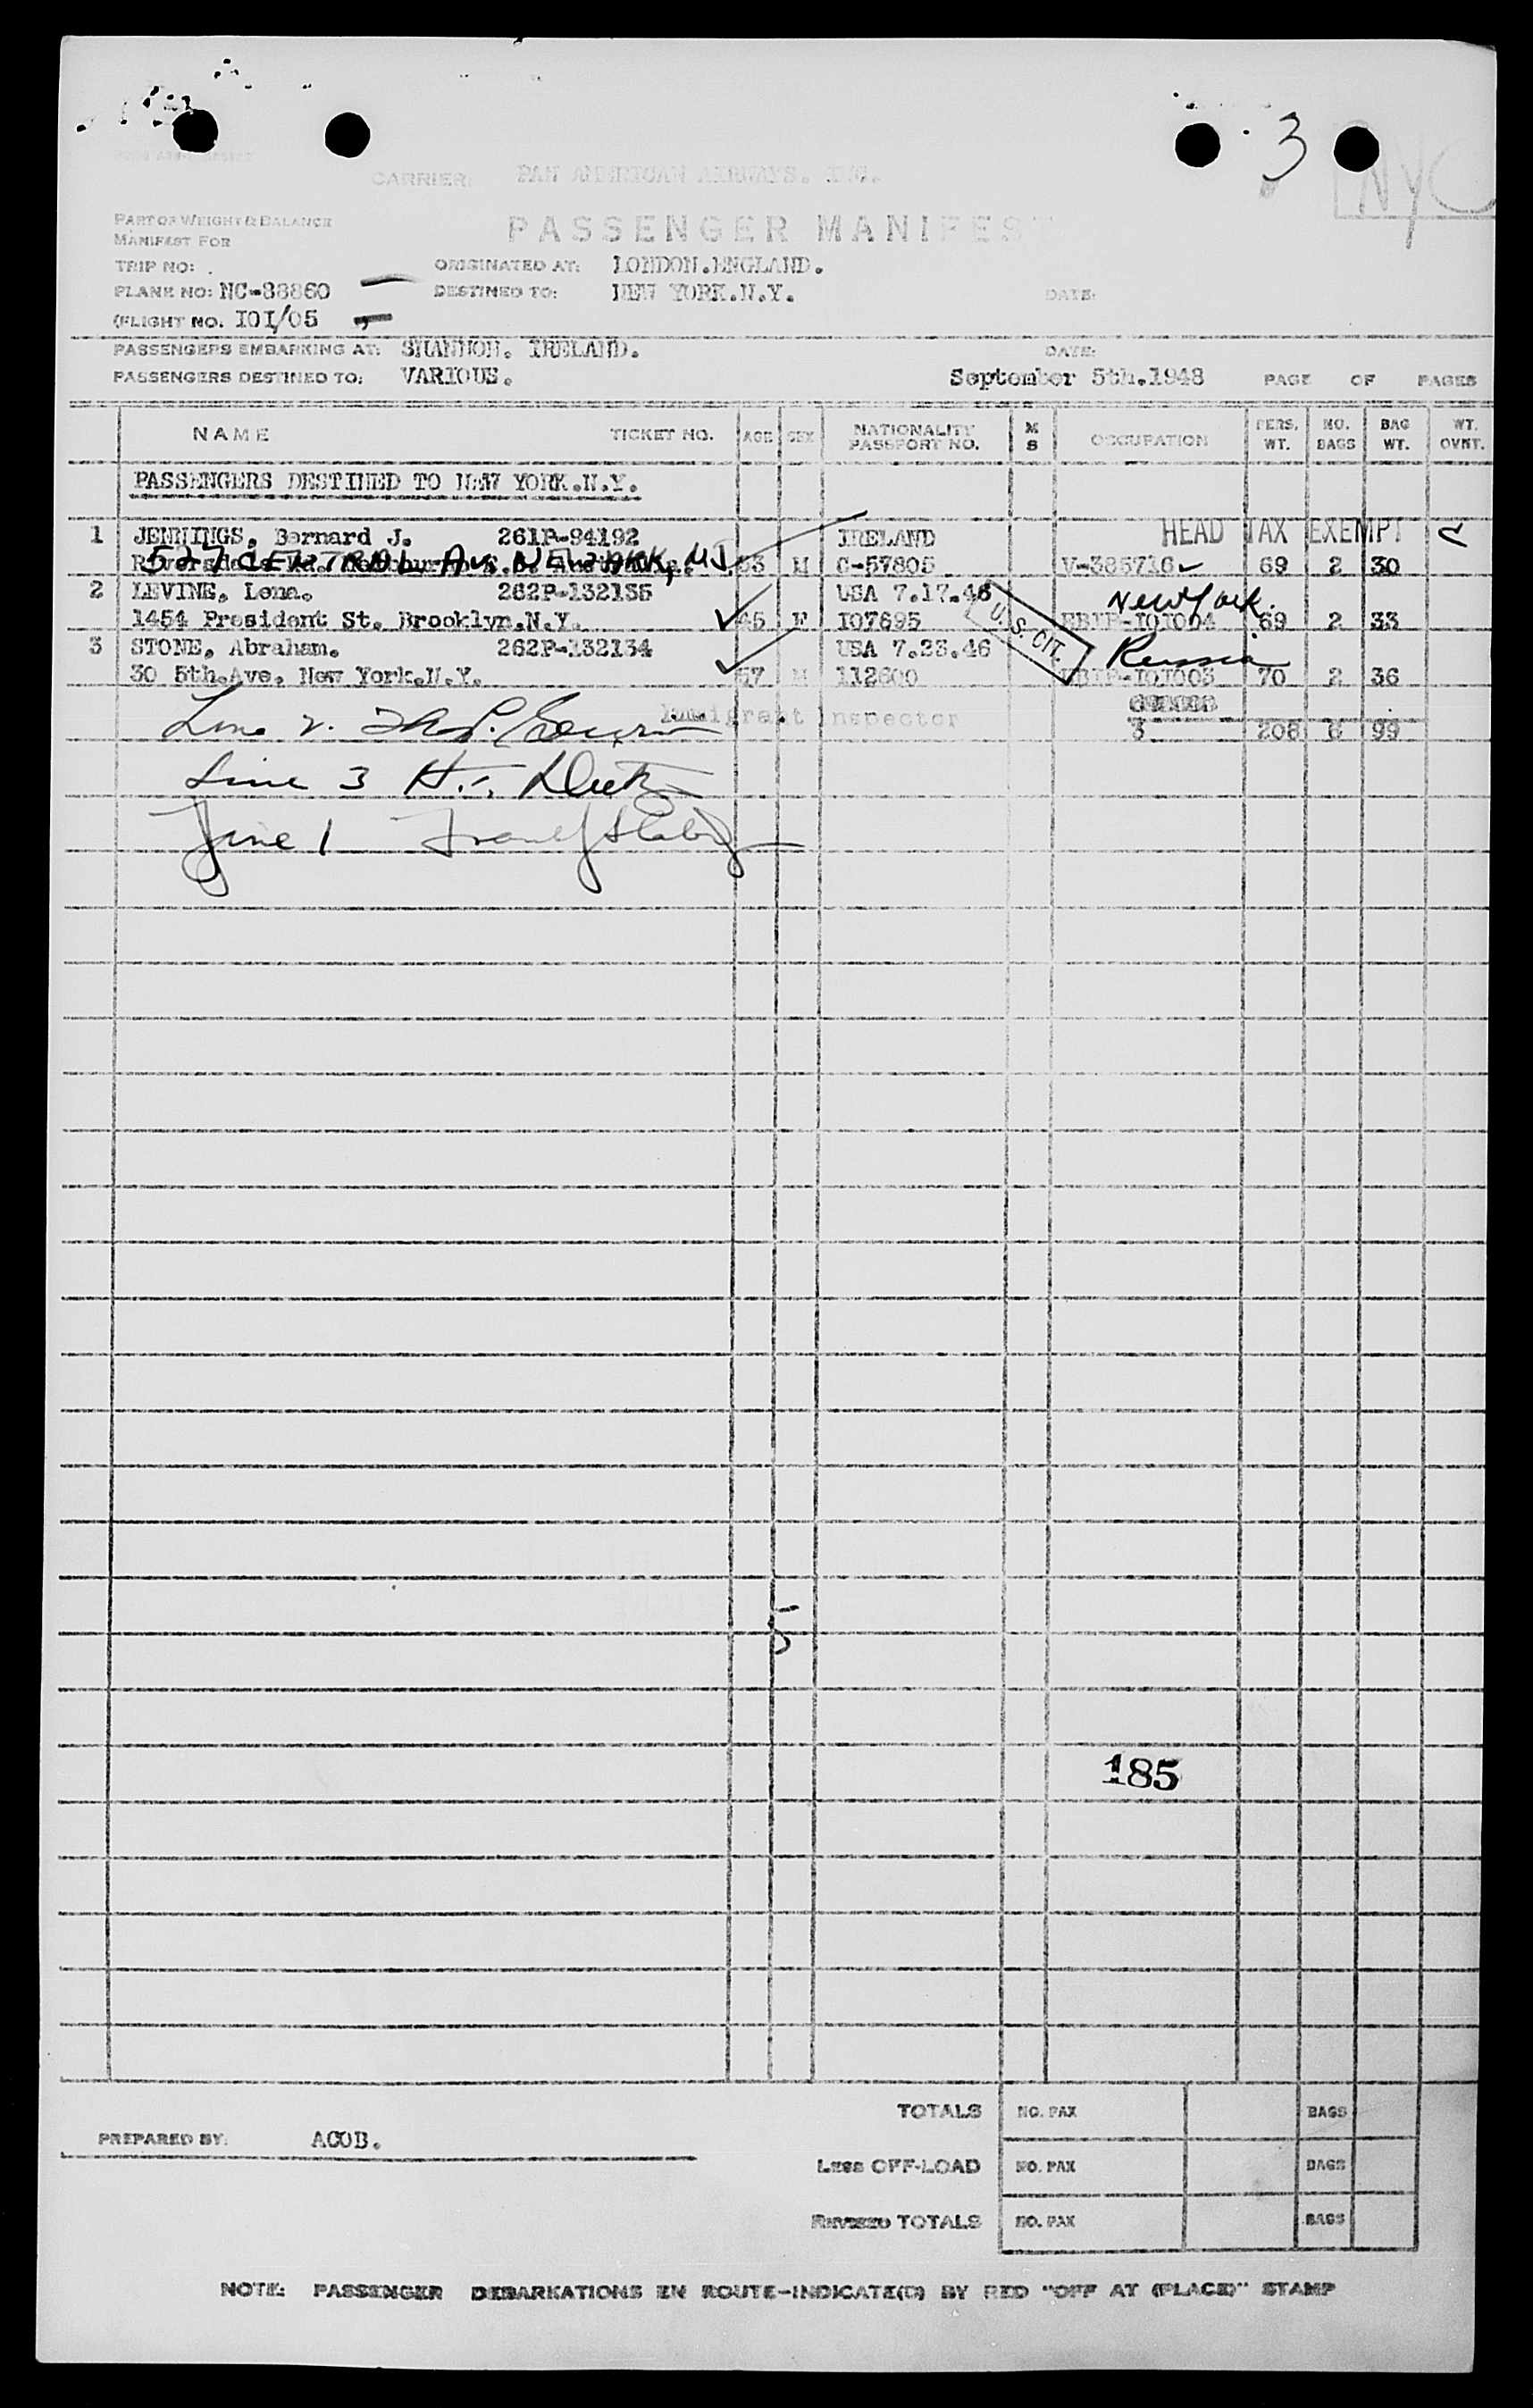 3
NYC
CARRIER: PAN AMERICAN AIRWAYS. INC.
PART OF WEIGHT & BALANCE
MANIFEST FOR
PASSENGER MANIFEST
TRIP NO: ORIGINATED AT: LONDON.ENGLAND.
PLANE NO: NC-88860 DESTINED TO: NEW YORK.N.Y. DATE:
(FLIGHT NO. IOI/05
PASSENGERS EMBARKING AT: SHANNON. IRELAND. DATE:
PASSENGERS DESTINED TO: VARIOUS. September 5th.1948 PAGE OF PAGES
NAME TICKET NO. AGE SEX NATIONALITY PASSPORT NO. M S OCCUPATION PERS. WT. NO. BAGS BAG WT. WT. OVNT.
PASSENGERS DESTINED TO NEW YORK.N.Y.
1 JENNINGS, Bernard J. 261P-94192 IRELAND HEAD TAX EXEMPT
527 CENTRAL AV. NEWARK, NJ M C-57805 V-385716 69 2 30
2 LEVINE, Lena. 262P-132135 USA 7.17.46 New York.
1454 President St. Brooklyn.N.Y. 45 F I07695 U.S. CIT. EBIP-IOI004 69 2 33
3 STONE, Abraham. 262P-132134 USA 7.23.46 Russia
30 5th.Ave, New York.N.Y. 57 M 112600 EBIP-IOI003 70 2 36
Line 2.
Immigrant Inspector
3 208 6 99
Line 3
Line 1
5
185
TOTALS NO. PAX BAGS
PREPARED BY: ACOB.
LESS OFF-LOAD NO. PAX BAGS
REVISED TOTALS NO. PAX BAGS
NOTE: PASSENGER DEBARKATIONS EN ROUTE-INDICATE(D) BY RED "OFF AT (PLACE)" STAMP